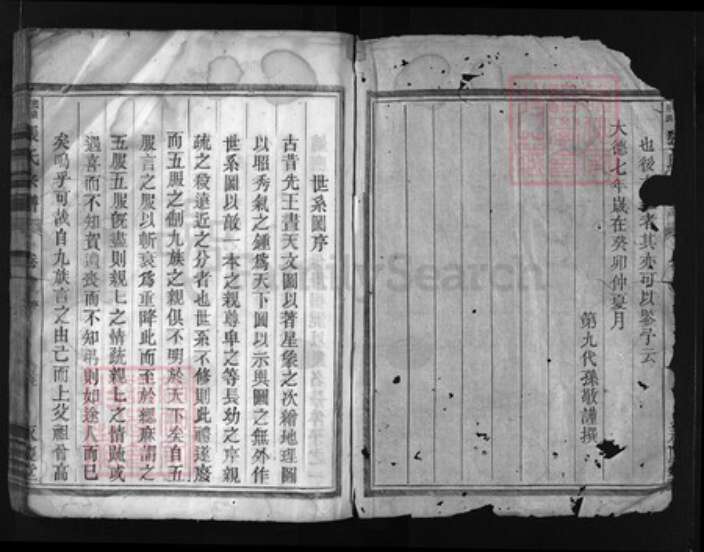 也後
者其亦可以鉴乎云
大德七年歲在癸卯仲夏月
第九代孫敬謹撰
世系圖序
古昔先王畫天文圖以著星象之次繪地理圖
以昭秀氣之鍾爲天下圖以示輿圖之無外作
世系圖以敵一本之親尊卑之等長幼之序親
疏之殺遠近之分者也世系不修則此禮遂廢
而五服之制九族之親俱不明於天下矣自五
服言之服以斬衰爲重降此而至於緦麻謂之
五服五服旣盡則親上之情疏親上之情疏或
遇喜而不知賀遇喪而不知弔則如途人而已
矣嗚乎可哉自九族言之由己而上父祖曾高
張氏宗譜
卷
FamilySearch